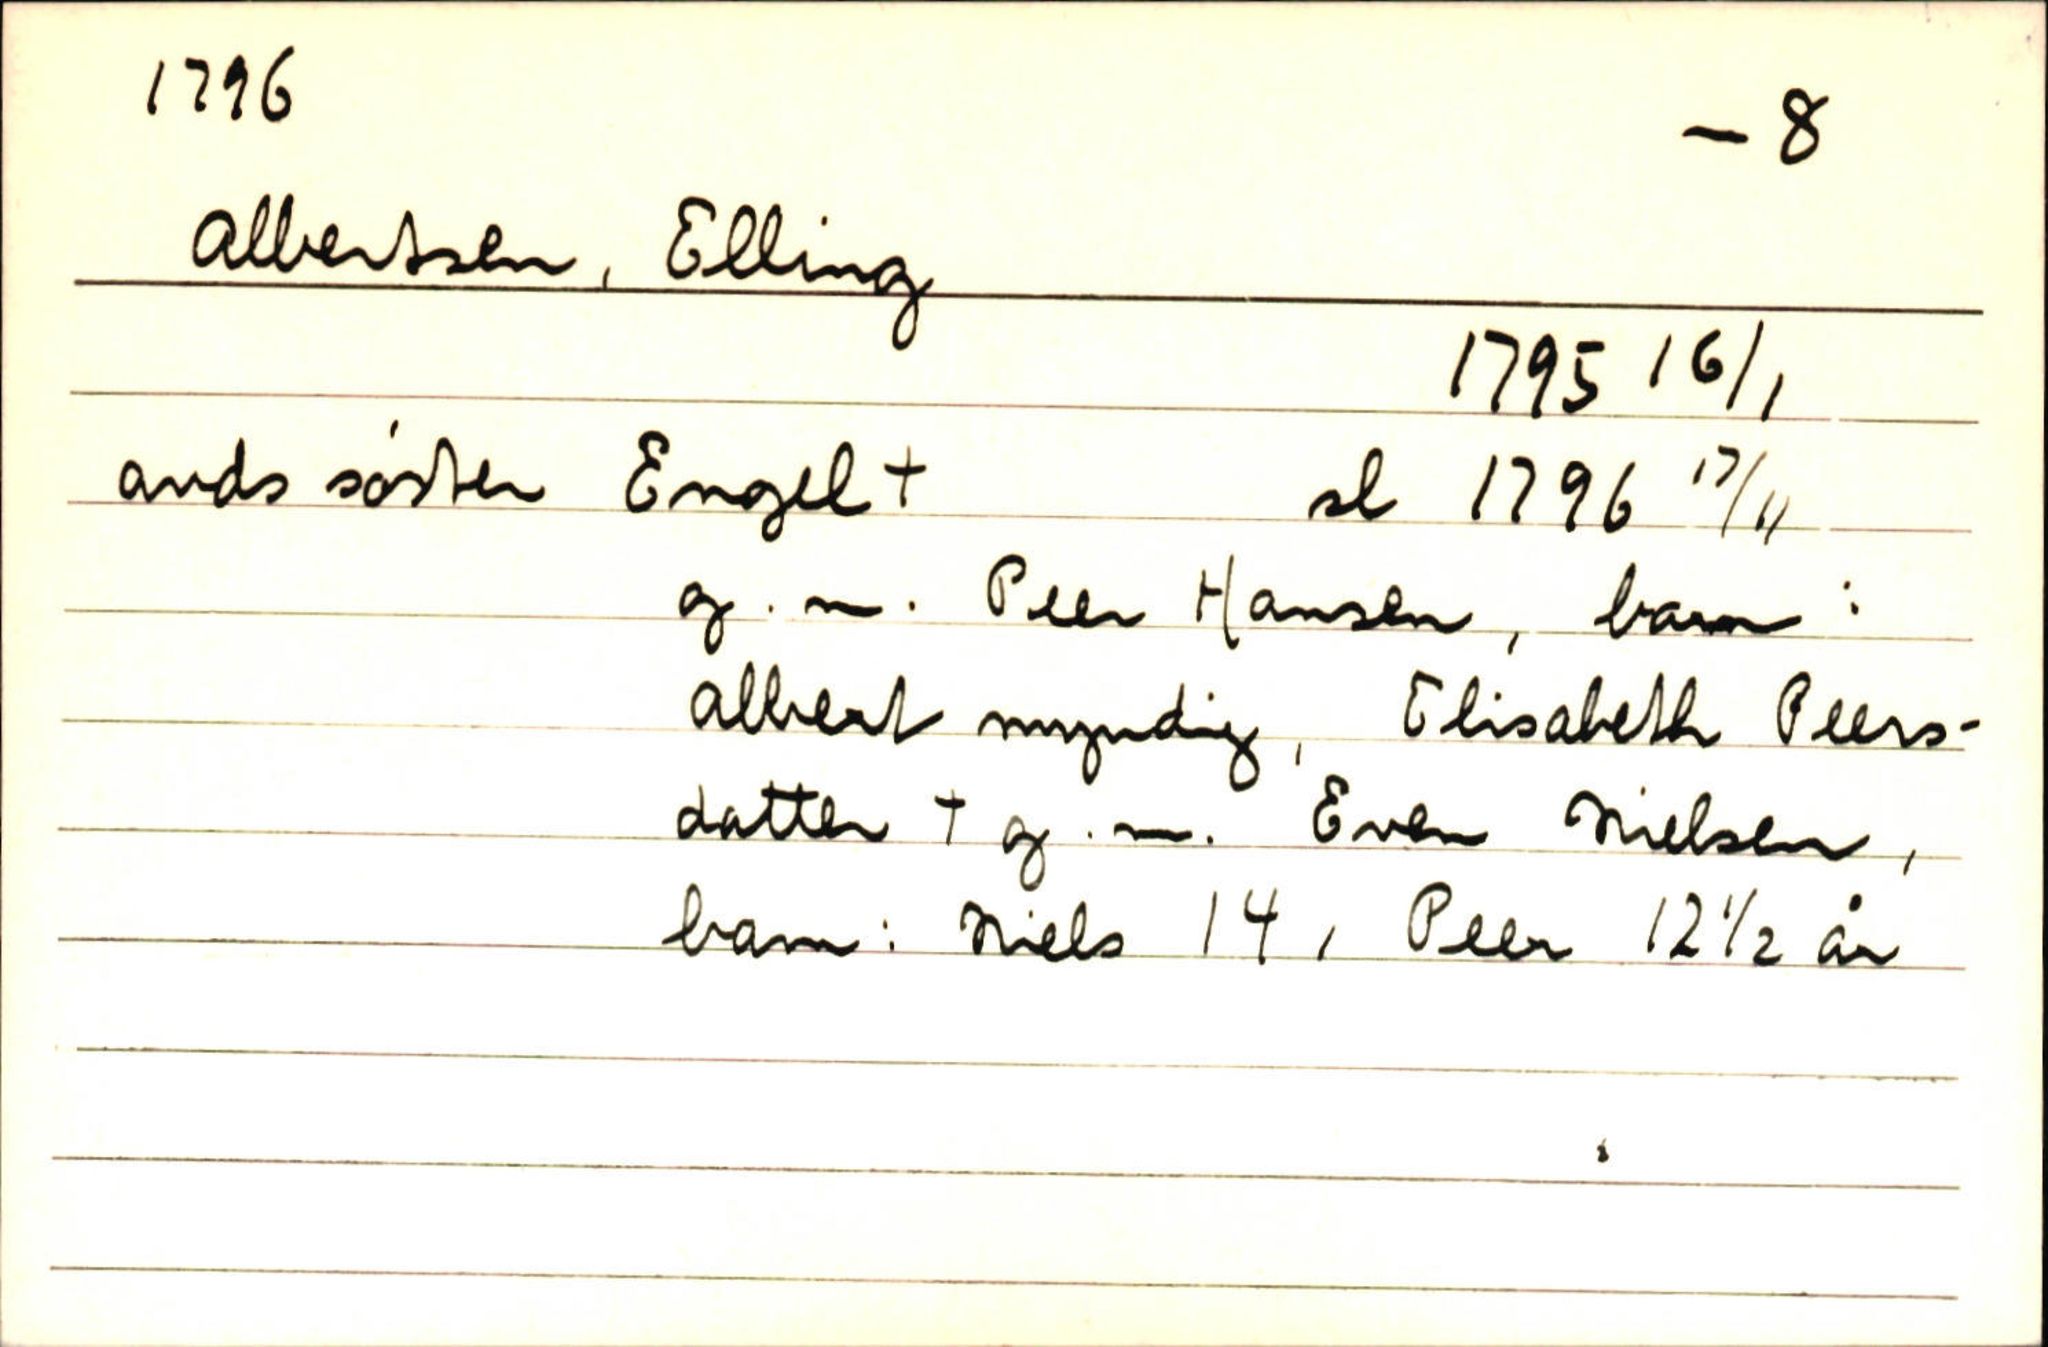 1796 - 8
Albertsen, Elling
1795 16/1
avds søster Engel + sl 1796 17/11
g.m. Peer Hansen, barn:
Albert myndig, Elisabeth Peers-
datter + g.m. Even Nielsen,
barn: Niels 14, Peer 12 1/2 år